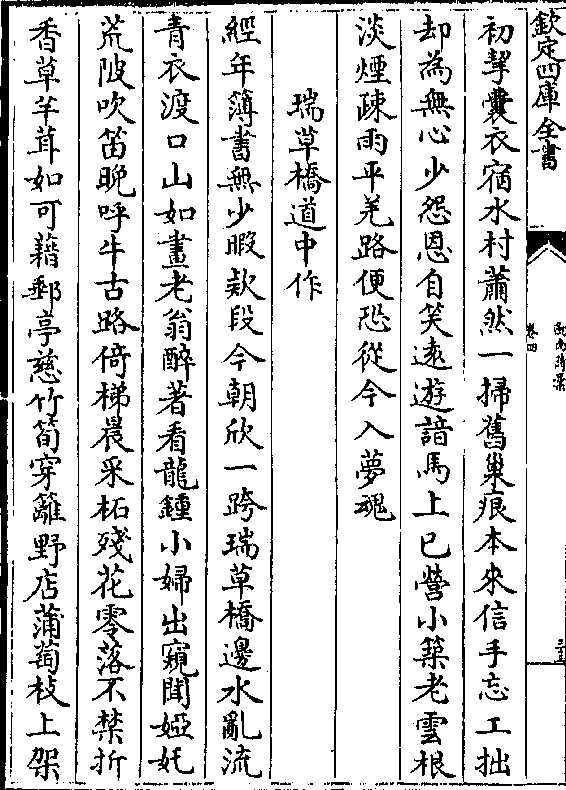 欽定四庫全書
劍南詩藁
卷四
三十五
初挈囊衣宿水村蕭然一掃舊巢痕本來信手忘工拙
却為無心少怨恩自笑遠遊諳馬上已營小築老雲根
淡煙疎雨平羌路便恐從今入夢魂
瑞草橋道中作
經年簿書無少暇款段今朝欣一跨瑞草橋邊水亂流
青衣渡口山如畫老翁醉著看龍鍾小婦出窺聞婭奼
荒陂吹笛晚呼牛古路倚梯晨采柘殘花零落不禁折
香草芊茸如可藉郵亭慈竹筍穿籬野店蒲萄枝上架